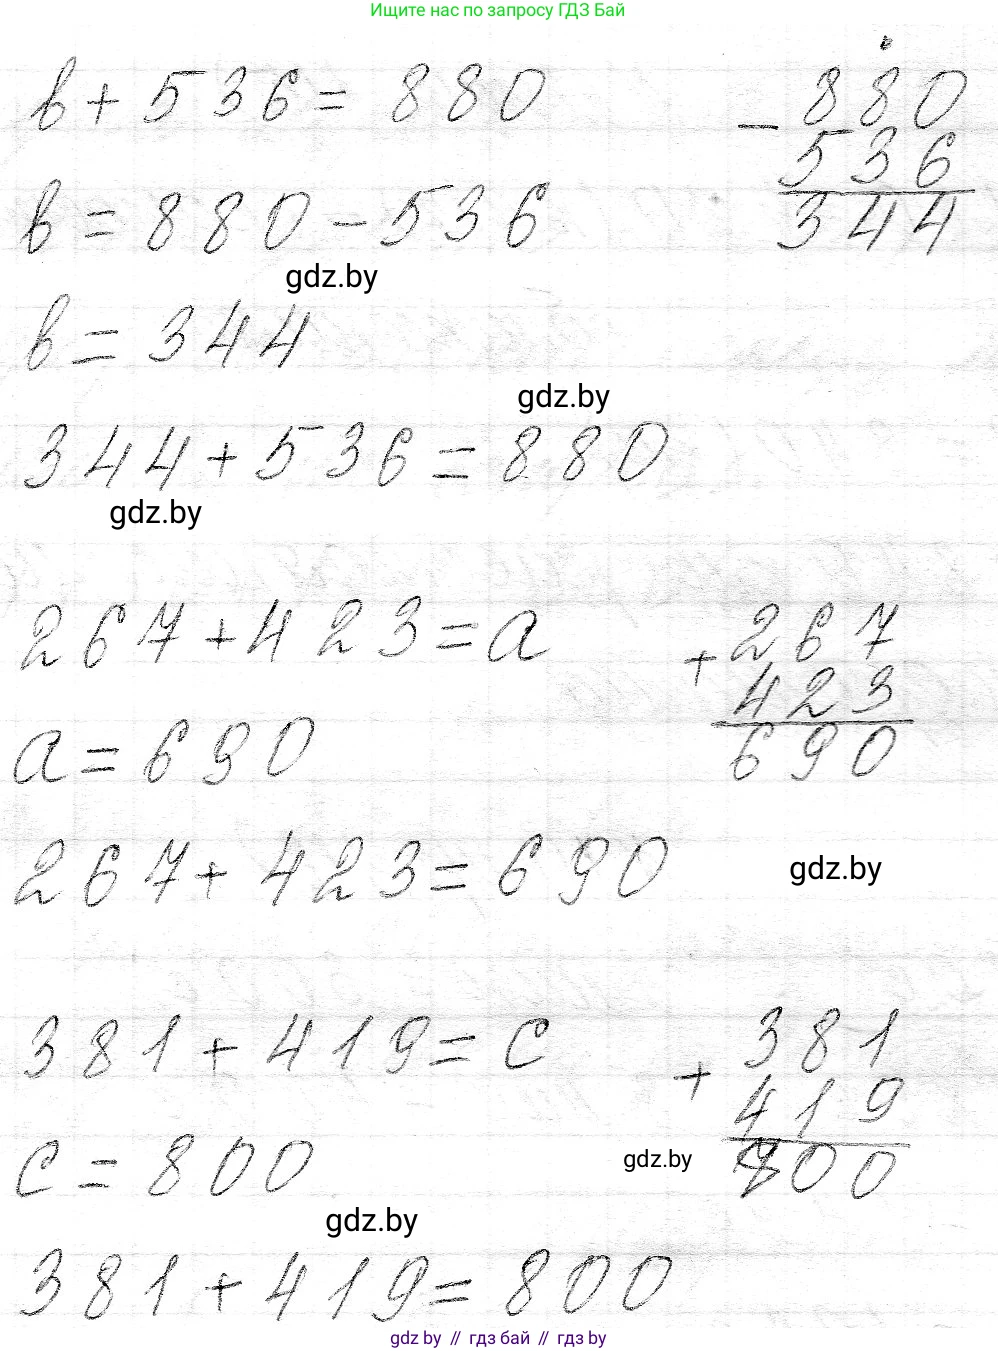 Ищите нас по запросу ГДЗ Бай
в + 536 = 880
в = 880 - 536
gdz.by
в = 344
gdz.by
344 + 536 = 880
gdz.by
- 880
536
344
267 + 423 = a
a = 690
267 + 423 = 690
+ 267
423
690
gdz.by
381 + 419 = c
c = 800
gdz.by
381 + 419 = 800
+ 381
419
800
gdz.by
gdz by // гдз бай // гдз by